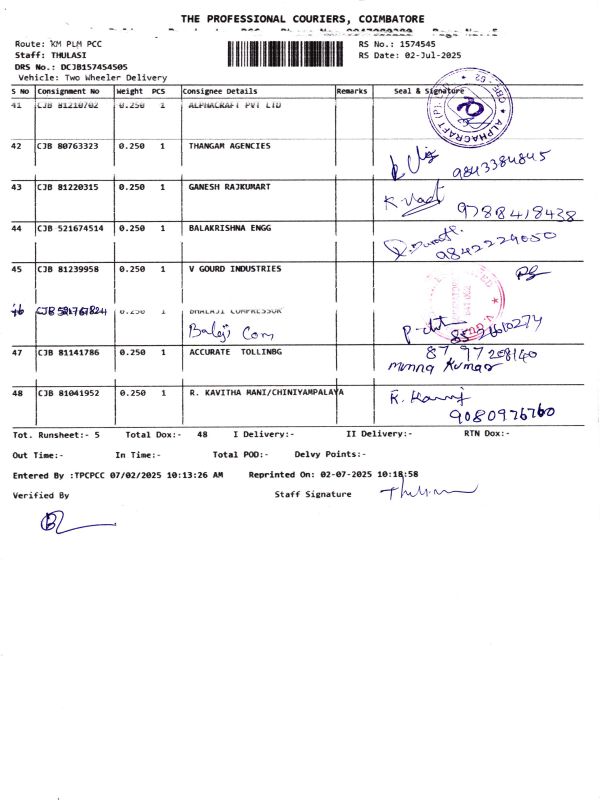 THE PROFESSIONAL COURIERS, COIMBATORE
Route: KM PLM PCC
RS No.: 1574545
Staff: THULASI
RS Date: 02-Jul-2025
DRS No.: DCJB157454505
Vehicle: Two Wheeler Delivery
S No Consignment No Weight PCS Consignee Details Remarks Seal & Signature
41 CJB 81210702 0.250 1 ALPHACRAFT PVT LTD
42 CJB 80763323 0.250 1 THANGAM AGENCIES
9843384845
43 CJB 81220315 0.250 1 GANESH RAJKUMART
9788418438
44 CJB 521674514 0.250 1 BALAKRISHNA ENGG
9842229050
45 CJB 81239958 0.250 1 V GOURD INDUSTRIES
46 CJB 521767824 0.250 1 BHALAJI COMPRESSOR
Balaji Com
47 CJB 81141786 0.250 1 ACCURATE TOLLINBG
Munna Kumar
48 CJB 81041952 0.250 1 R. KAVITHA MANI/CHINIYAMPALAYA
9080976760
Tot. Runsheet:- 5 Total Dox:- 48 I Delivery:- II Delivery:- RTN Dox:-
Out Time:- In Time:- Total POD:- Delvy Points:-
Entered By :TPCPCC 07/02/2025 10:13:26 AM Reprinted On: 02-07-2025 10:18:58
Verified By Staff Signature